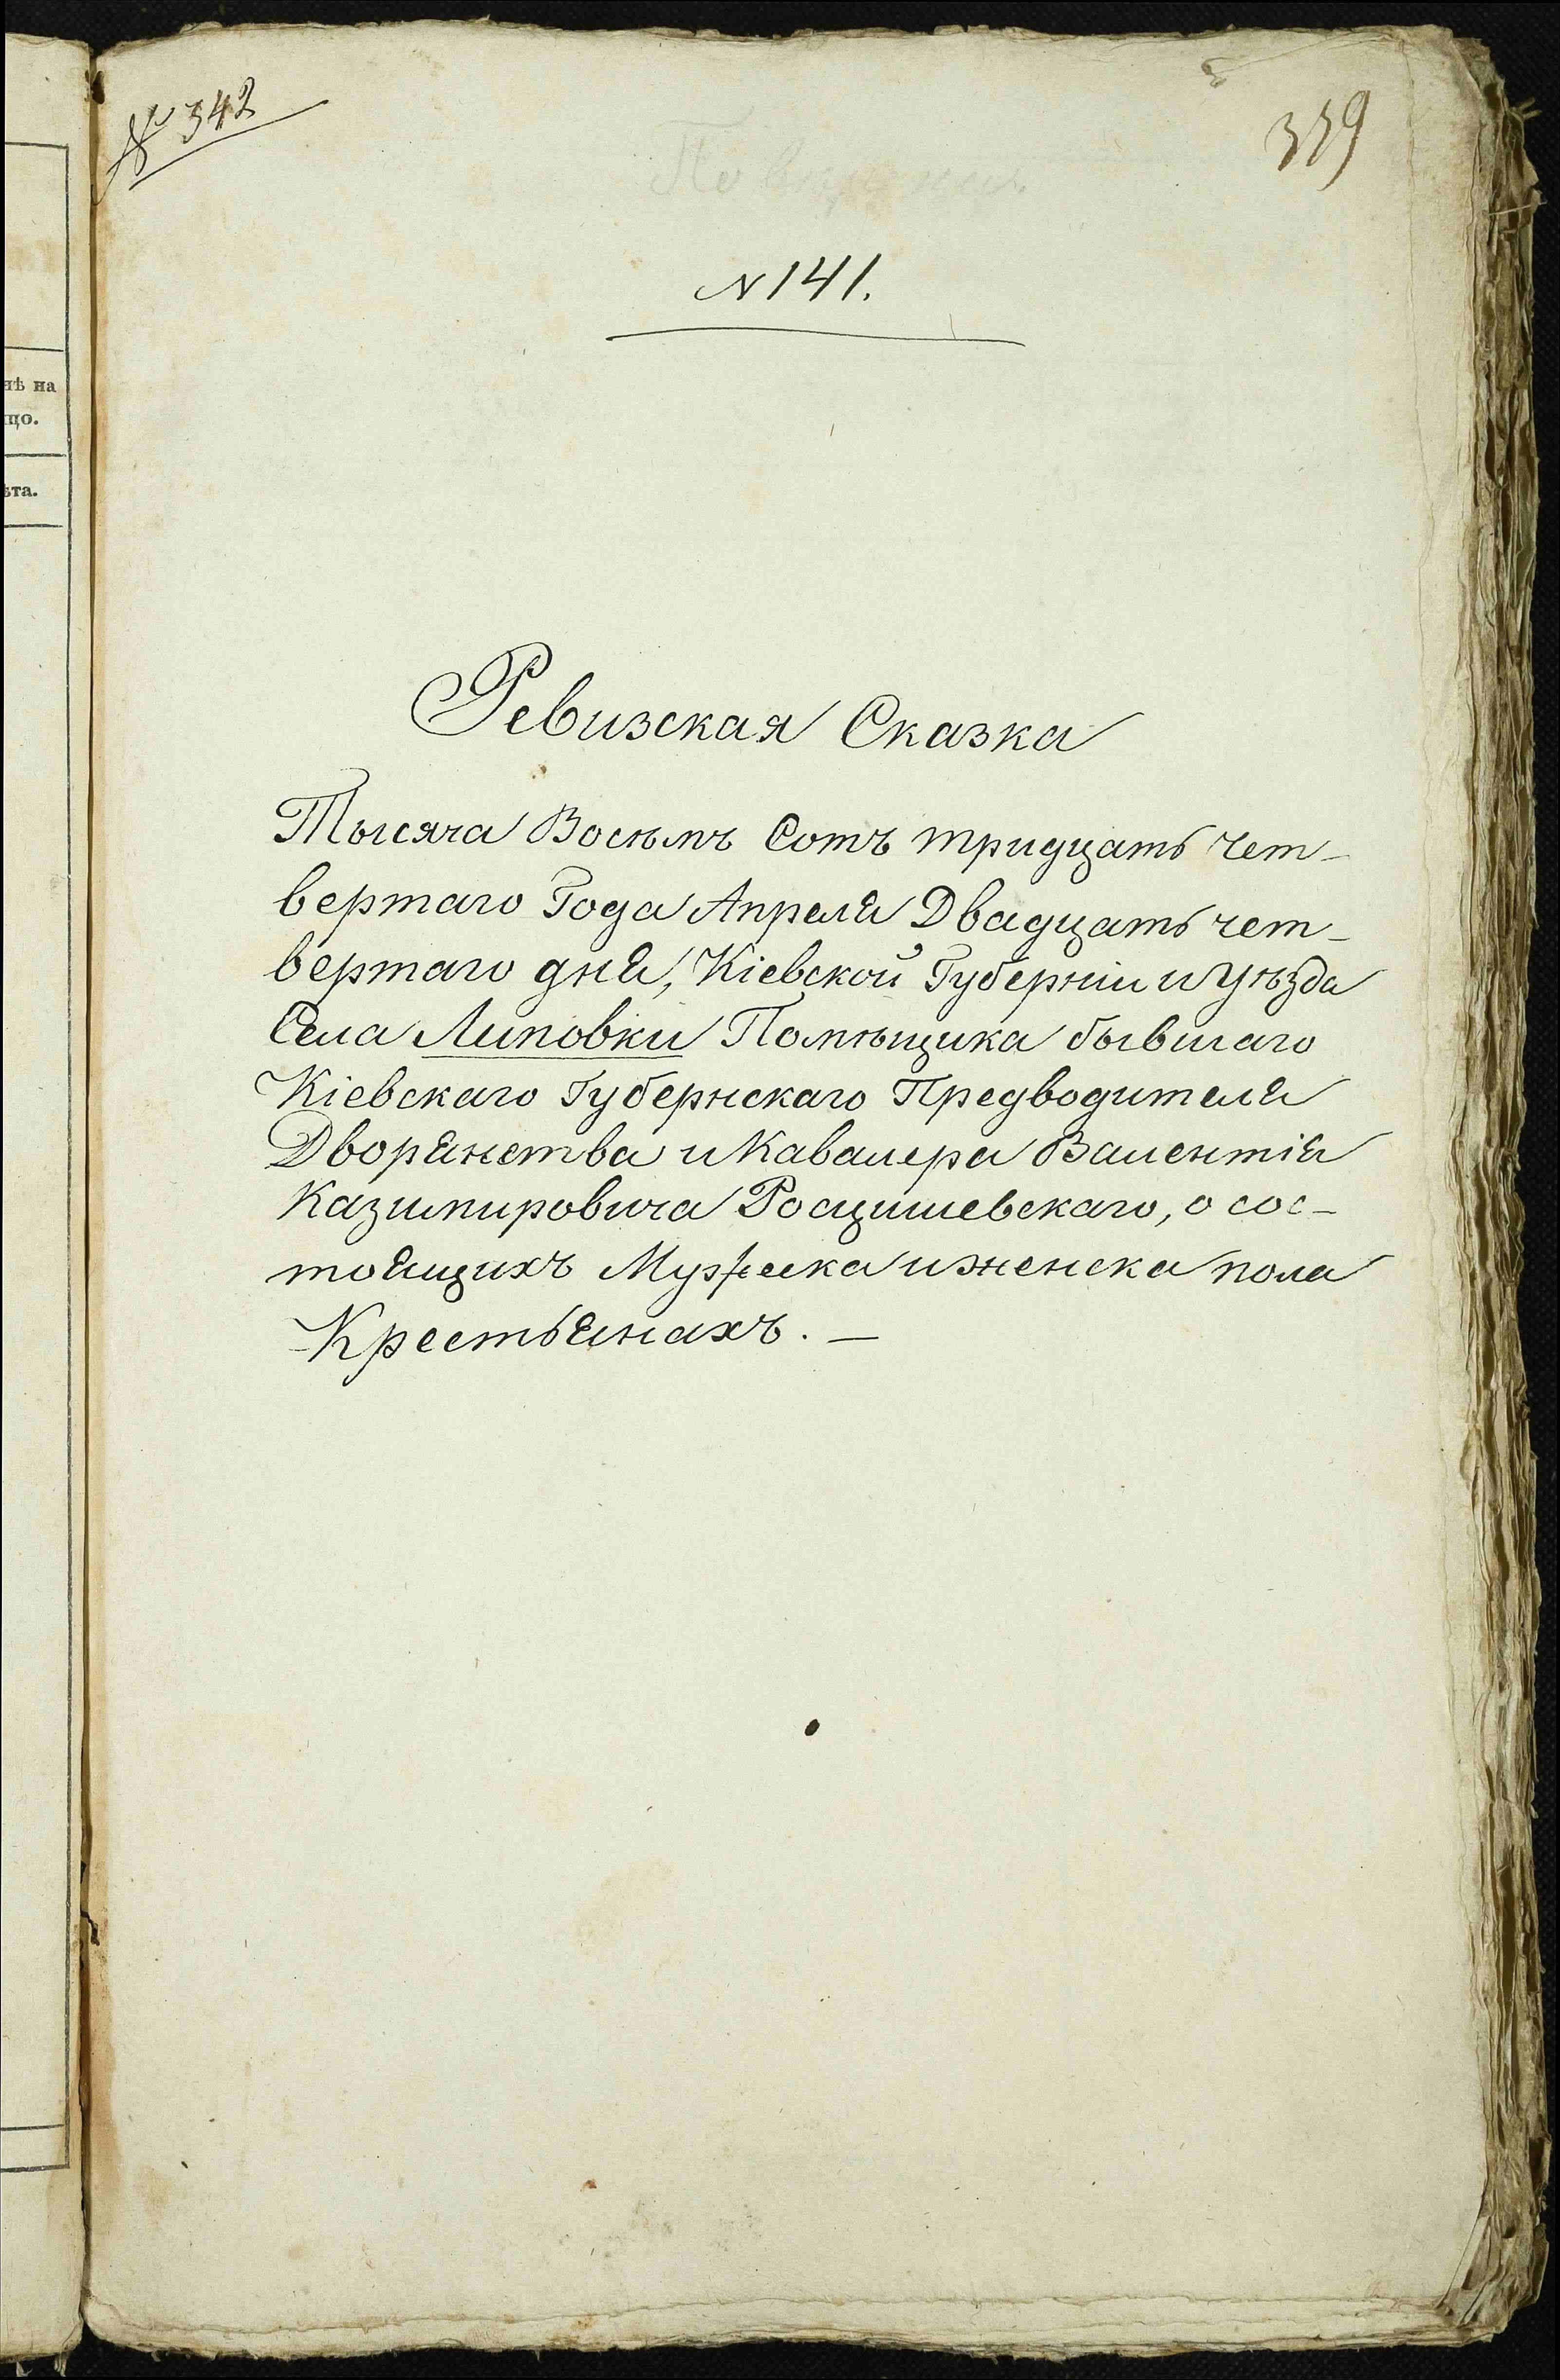 № 342
359
N 141.
нѣ на
що.
ѣта.
Ревизская Сказка
Тысяча Восѣмъ Сотъ тридцать чет-
вертаго Года Апреля Двадцать чет-
вертаго дня, Кіевской Губерніи и уѣзда
Села Липовки Помѣщика бывшаго
Кіевскаго Губернскаго Предводителя
Дворянства и Кавалера Валентія
Казимировича Росцишевскаго, о сос-
тоящихъ Мужеска и женска пола
Крестьянахъ. —